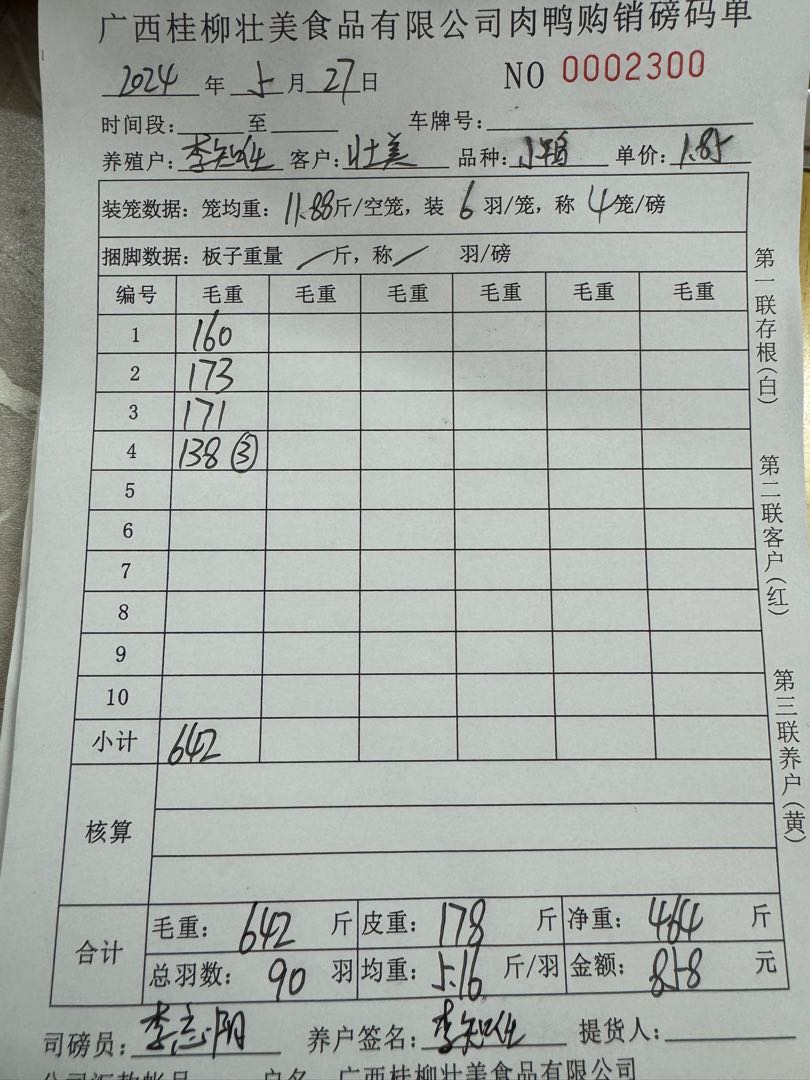 广西桂柳壮美食品有限公司肉鸭购销磅码单
2024 年 5 月 27 日 NO 0002300
时间段: 至 车牌号:
养殖户: 李知 客户: 壮美 品种: 小鸭 单价: 1.85
装笼数据: 笼均重: 11.88 斤/空笼, 装 6 羽/笼, 称 4 笼/磅
捆脚数据: 板子重量 / 斤, 称 / 羽/磅
编号 毛重 毛重 毛重 毛重 毛重 毛重
1 160
2 173
3 171
4 138 ③
5
6
7
8
9
10
小计 642
核算
合计
毛重: 642 斤 皮重: 178 斤 净重: 464 斤
总羽数: 90 羽 均重: 5.16 斤/羽 金额: 858 元
司磅员: 李志阳 养户签名: 李知 提货人:
户名 广西桂柳壮美食品有限公司
第一联存根(白)
第二联客户(红)
第三联养户(黄)